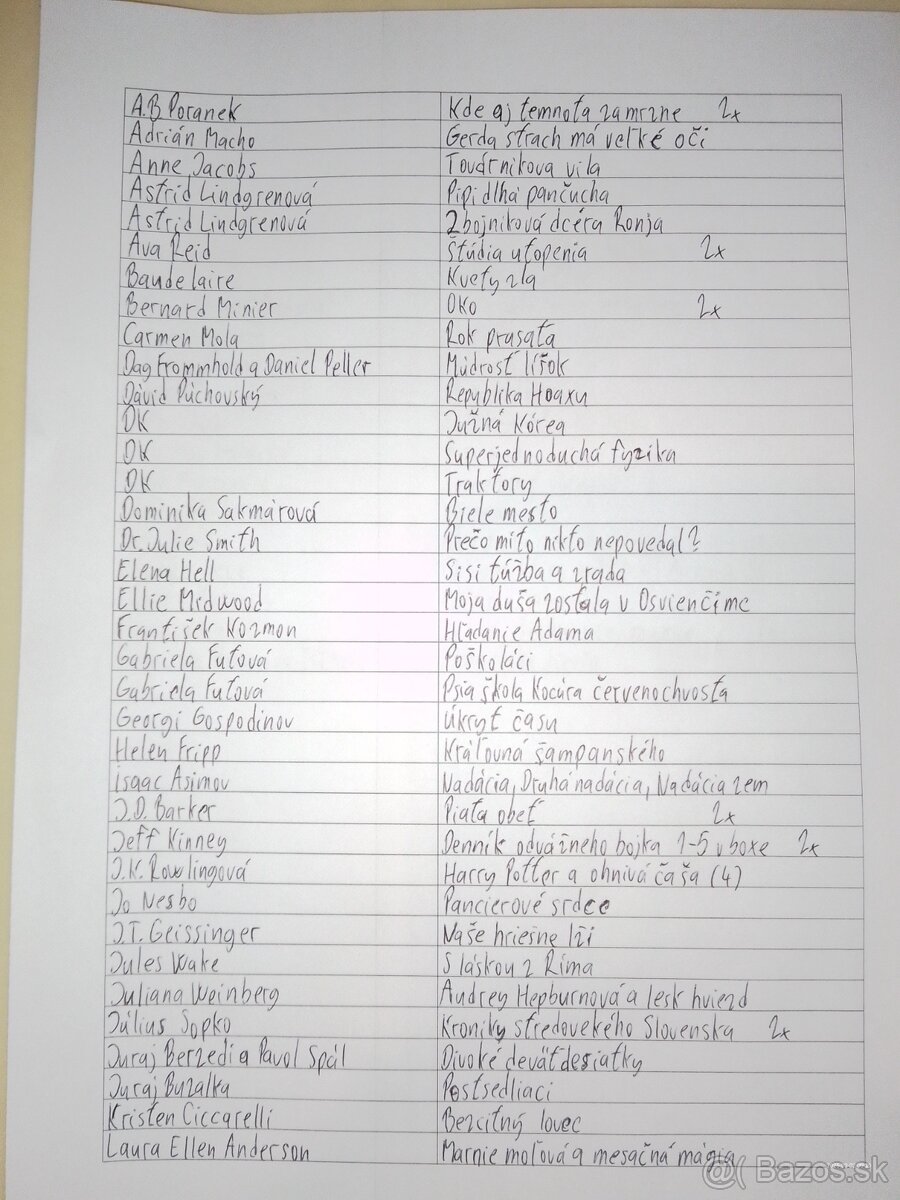 A.B Poranek Kde aj temnota zamrzne 2x
Adrián Macho Gerda strach má veľké oči
Anne Jacobs Továrnikova vila
Astrid Lindgrenová Pipi dlhá pančucha
Astrid Lindgrenová Zbojníková dcéra Ronja
Ava Reid Štúdia utopenia 2x
Baudelaire Kvety zla
Bernard Minier Oko 2x
Carmen Mola Rok prasaťa
Dag Frommhold a Daniel Peller Múdrosť líšok
Dávid Púchovský Republika Hoaxu
DK Južná Kórea
DK Superjednoduchá fyzika
DK Traktory
Dominika Sakmárová Biele mesto
Dr. Julie Smith Prečo mi to nikto nepovedal?
Elena Hell Sisi túžba a zrada
Ellie Midwood Moja duša zostala v Osvienčime
František Kozmon Hľadanie Adama
Gabriela Futová Poškoláci
Gabriela Futová Psia škola Kocúra červenochvosta
Georgi Gospodinov Úkryt času
Helen Fripp Kráľovná šampanského
Isaac Asimov Nadácia, Druhá nadácia, Nadácia zem
J.D. Barker Piata obeť 2x
Jeff Kinney Denník odvážneho bojka 1-5 v boxe 2x
J.K. Rowlingová Harry Potter a ohnivá čaša (4)
Jo Nesbo Pancierové srdce
J.T. Geissinger Naše hriešne lži
Jules Wake S láskou z Ríma
Juliana Weinberg Audrey Hepburnová a lesk hviezd
Július Sopko Kroniky stredovekého Slovenska 2x
Juraj Berzedi a Pavol Spál Divoké deväťdesiatky
Juraj Buzalka Postsedliaci
Kristen Ciccarelli Bezcitný lovec
Laura Ellen Anderson Marnie moľová a mesačná mágia
Bazos.sk